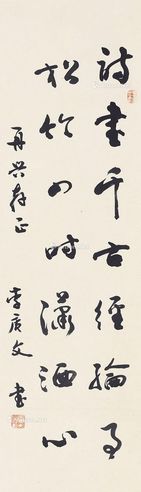 詩書千古經綸事
松竹四時瀟洒心
再興存正
李广文書